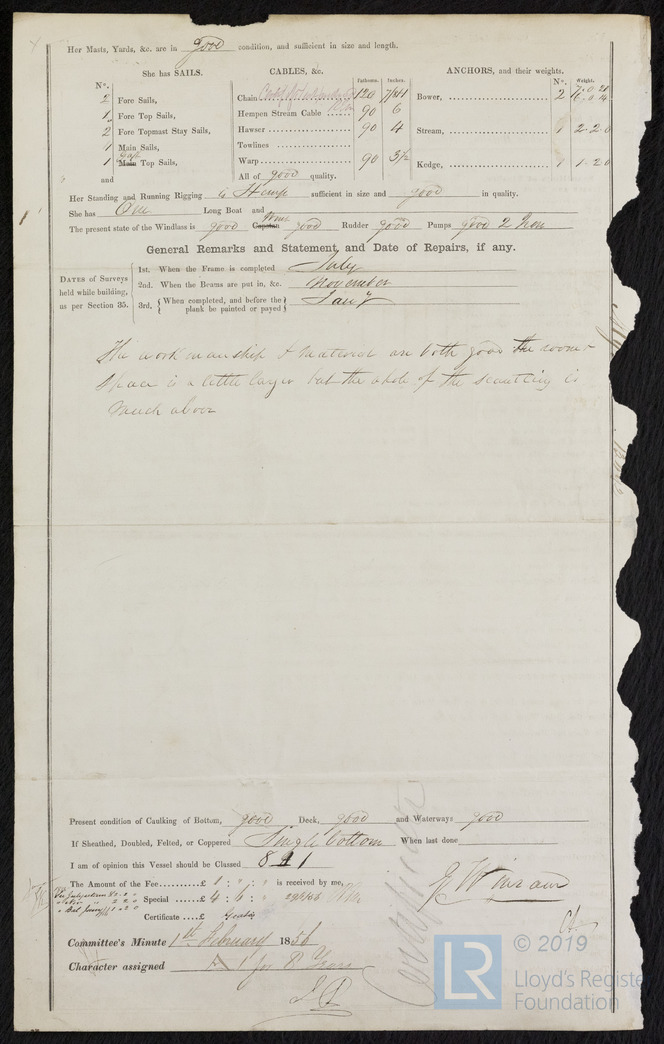 Her Masts, Yards, &c. are in good condition, and sufficient in size and length.
She has SAILS.
CABLES, &c.
ANCHORS, and their weights.
Nº.
Fathoms. Inches.
Nº. Weight.
2 Fore Sails,
1 Fore Top Sails,
2 Fore Topmast Stay Sails,
Main Sails,
1 Main Top Sails,
and
Chain 120
Hempen Stream Cable 90 6
Hawser 90 4
Towlines
Warp 90 3½
All of good quality.
Bower, 2
Stream, 1 2.2.0
Kedge, 1 1.2.0
Her Standing and Running Rigging is Hemp sufficient in size and good in quality.
She has One Long Boat and
The present state of the Windlass is good Capstan good Rudder good Pumps good 2 Iron
General Remarks and Statement, and Date of Repairs, if any.
DATES of Surveys held while building, as per Section 35.
1st. When the Frame is completed July
2nd. When the Beams are put in, &c. November
3rd. When completed, and before the plank be painted or payed Jany
The workmanship & material are both good the room &
Space is a little larger but the whole of the scantling is
much above
Present condition of Caulking of Bottom, good Deck, good and Waterways good
If Sheathed, Doubled, Felted, or Coppered Single bottom When last done
I am of opinion this Vessel should be Classed 8 A 1
The Amount of the Fee £ 1 : " : " is received by me,
Special £ 4 : 6 : "
Certificate £ Gratis
Committee's Minute 1st February 1856
Character assigned A 1 for 8 Years
Certificate
LR
© 2019
Lloyd's Register
Foundation